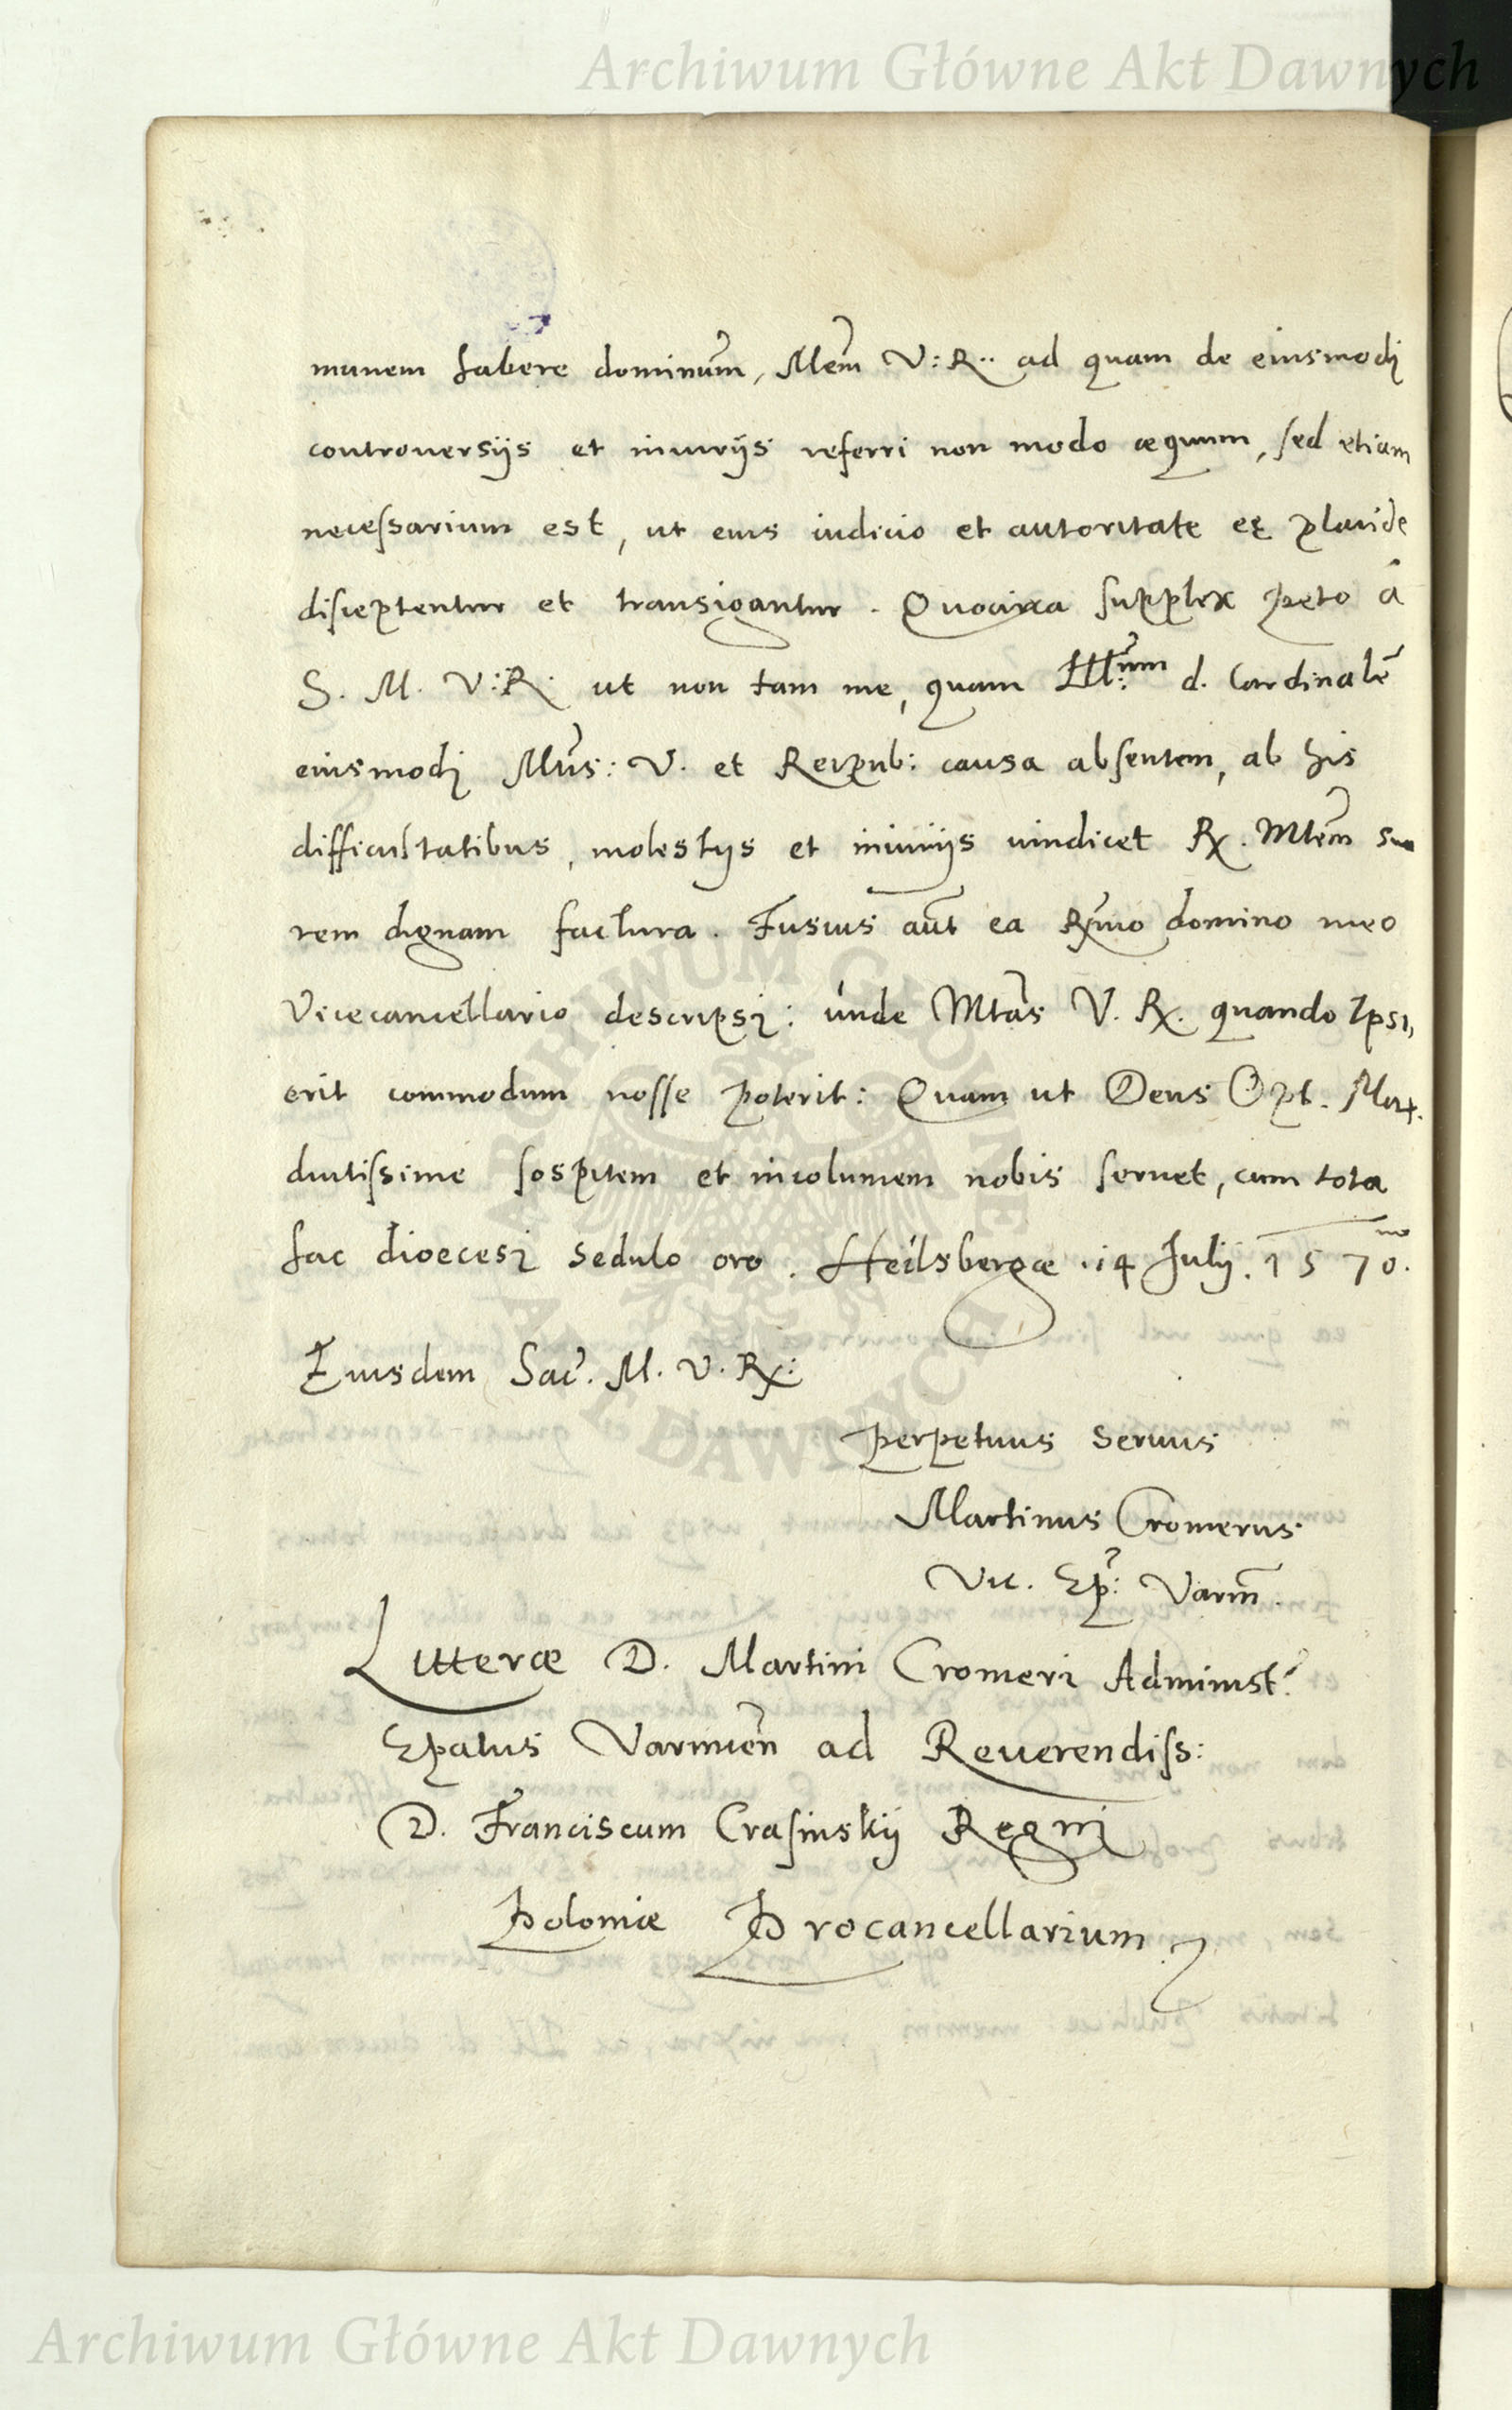 Archiwum Główne Akt Dawnych
munem habere dominum, Mtem V: R.. ad quam de eiusmodi
controuersijs et iniurijs referri non modo æquum, sed etiam
necessarium est, ut eius iudicio et autoritate eę placide
disceptentur et transigantur. Quocirca supplex peto à
S. M. V: R. ut non tam me, quam Ill:um d. Cardinalẽ
eiusmodi Mtis: V. et Reipub: causa absentem, ab his
difficultatibus, molestijs et iniurijs uindicet Rx. Mtem sua
rem dignam factura. Fusius aũt ea Rx̃mo domino meo
Vicecancellario descripsi: unde Mtas V. Rx. quando Ipsi,
erit commodum nosse poterit: Quam ut Deus Opt. Max.
diutissime sospitem et incolumem nobis seruet, cum tota
hac dioecesi sedulo oro. Heilsbergæ .14 Julij. 1570.mo
Eiusdem Sac. M. V. Rx:
perpetuus seruus
Martinus Cromerus
Vic. Ep: Varm̃.
Litteræ D. Martini Cromeri Administ:
Epatus Varmieñ ad Reuerendiss:
D. Franciscum Crasinskij Regni
Poloniæ Procancellarium.
ARCHIWUM GŁÓWNE AKT DAWNYCH
Archiwum Główne Akt Dawnych